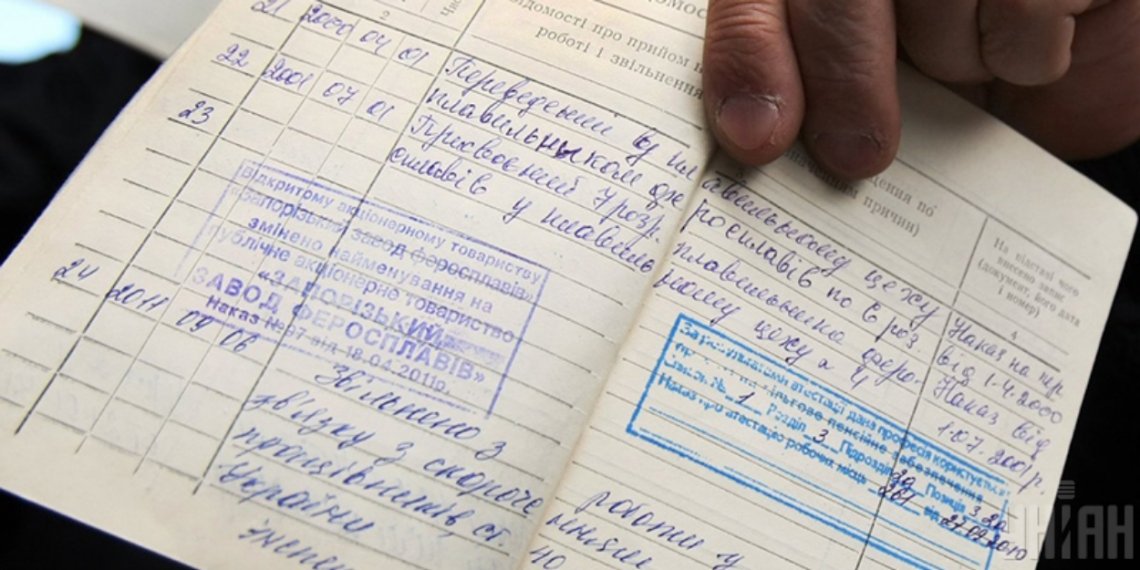 відомості про прийом н
роботі і звільнення
2
21 2000 04 01 Переведений в пл авильному цеху Наказ на пер.
плавильником фе росплавів по 6 роз. від 1-4.2000
22 2001 07 01 Присвоєний 7 розр. плавильника феро- Наказ від
сплавів у плавиль ному цеху 1.07.2001р.
23
Відкритому акціонерному товариству
«Запорізький завод феросплавів»
змінено найменування на
публічне акціонерне товариство
«ЗАПОРІЗЬКИЙ
ЗАВОД ФЕРОСПЛАВІВ»
Наказ №97 від 18.04.2011р.
За результатами атестації дана професія користується
пільгове пенсійне забезпечення
Список № 1 Розділ 3 Підрозділ Позиція
Наказ про атестацію робочих місць від
24 2011 09 06 Звільнено з роботи у
звязку з скороче нням
працівників ст 40
України
ведення по
нням причини)
На підставі чого
внесено запис
(документ, його дата
і номер)
4
УНІАН